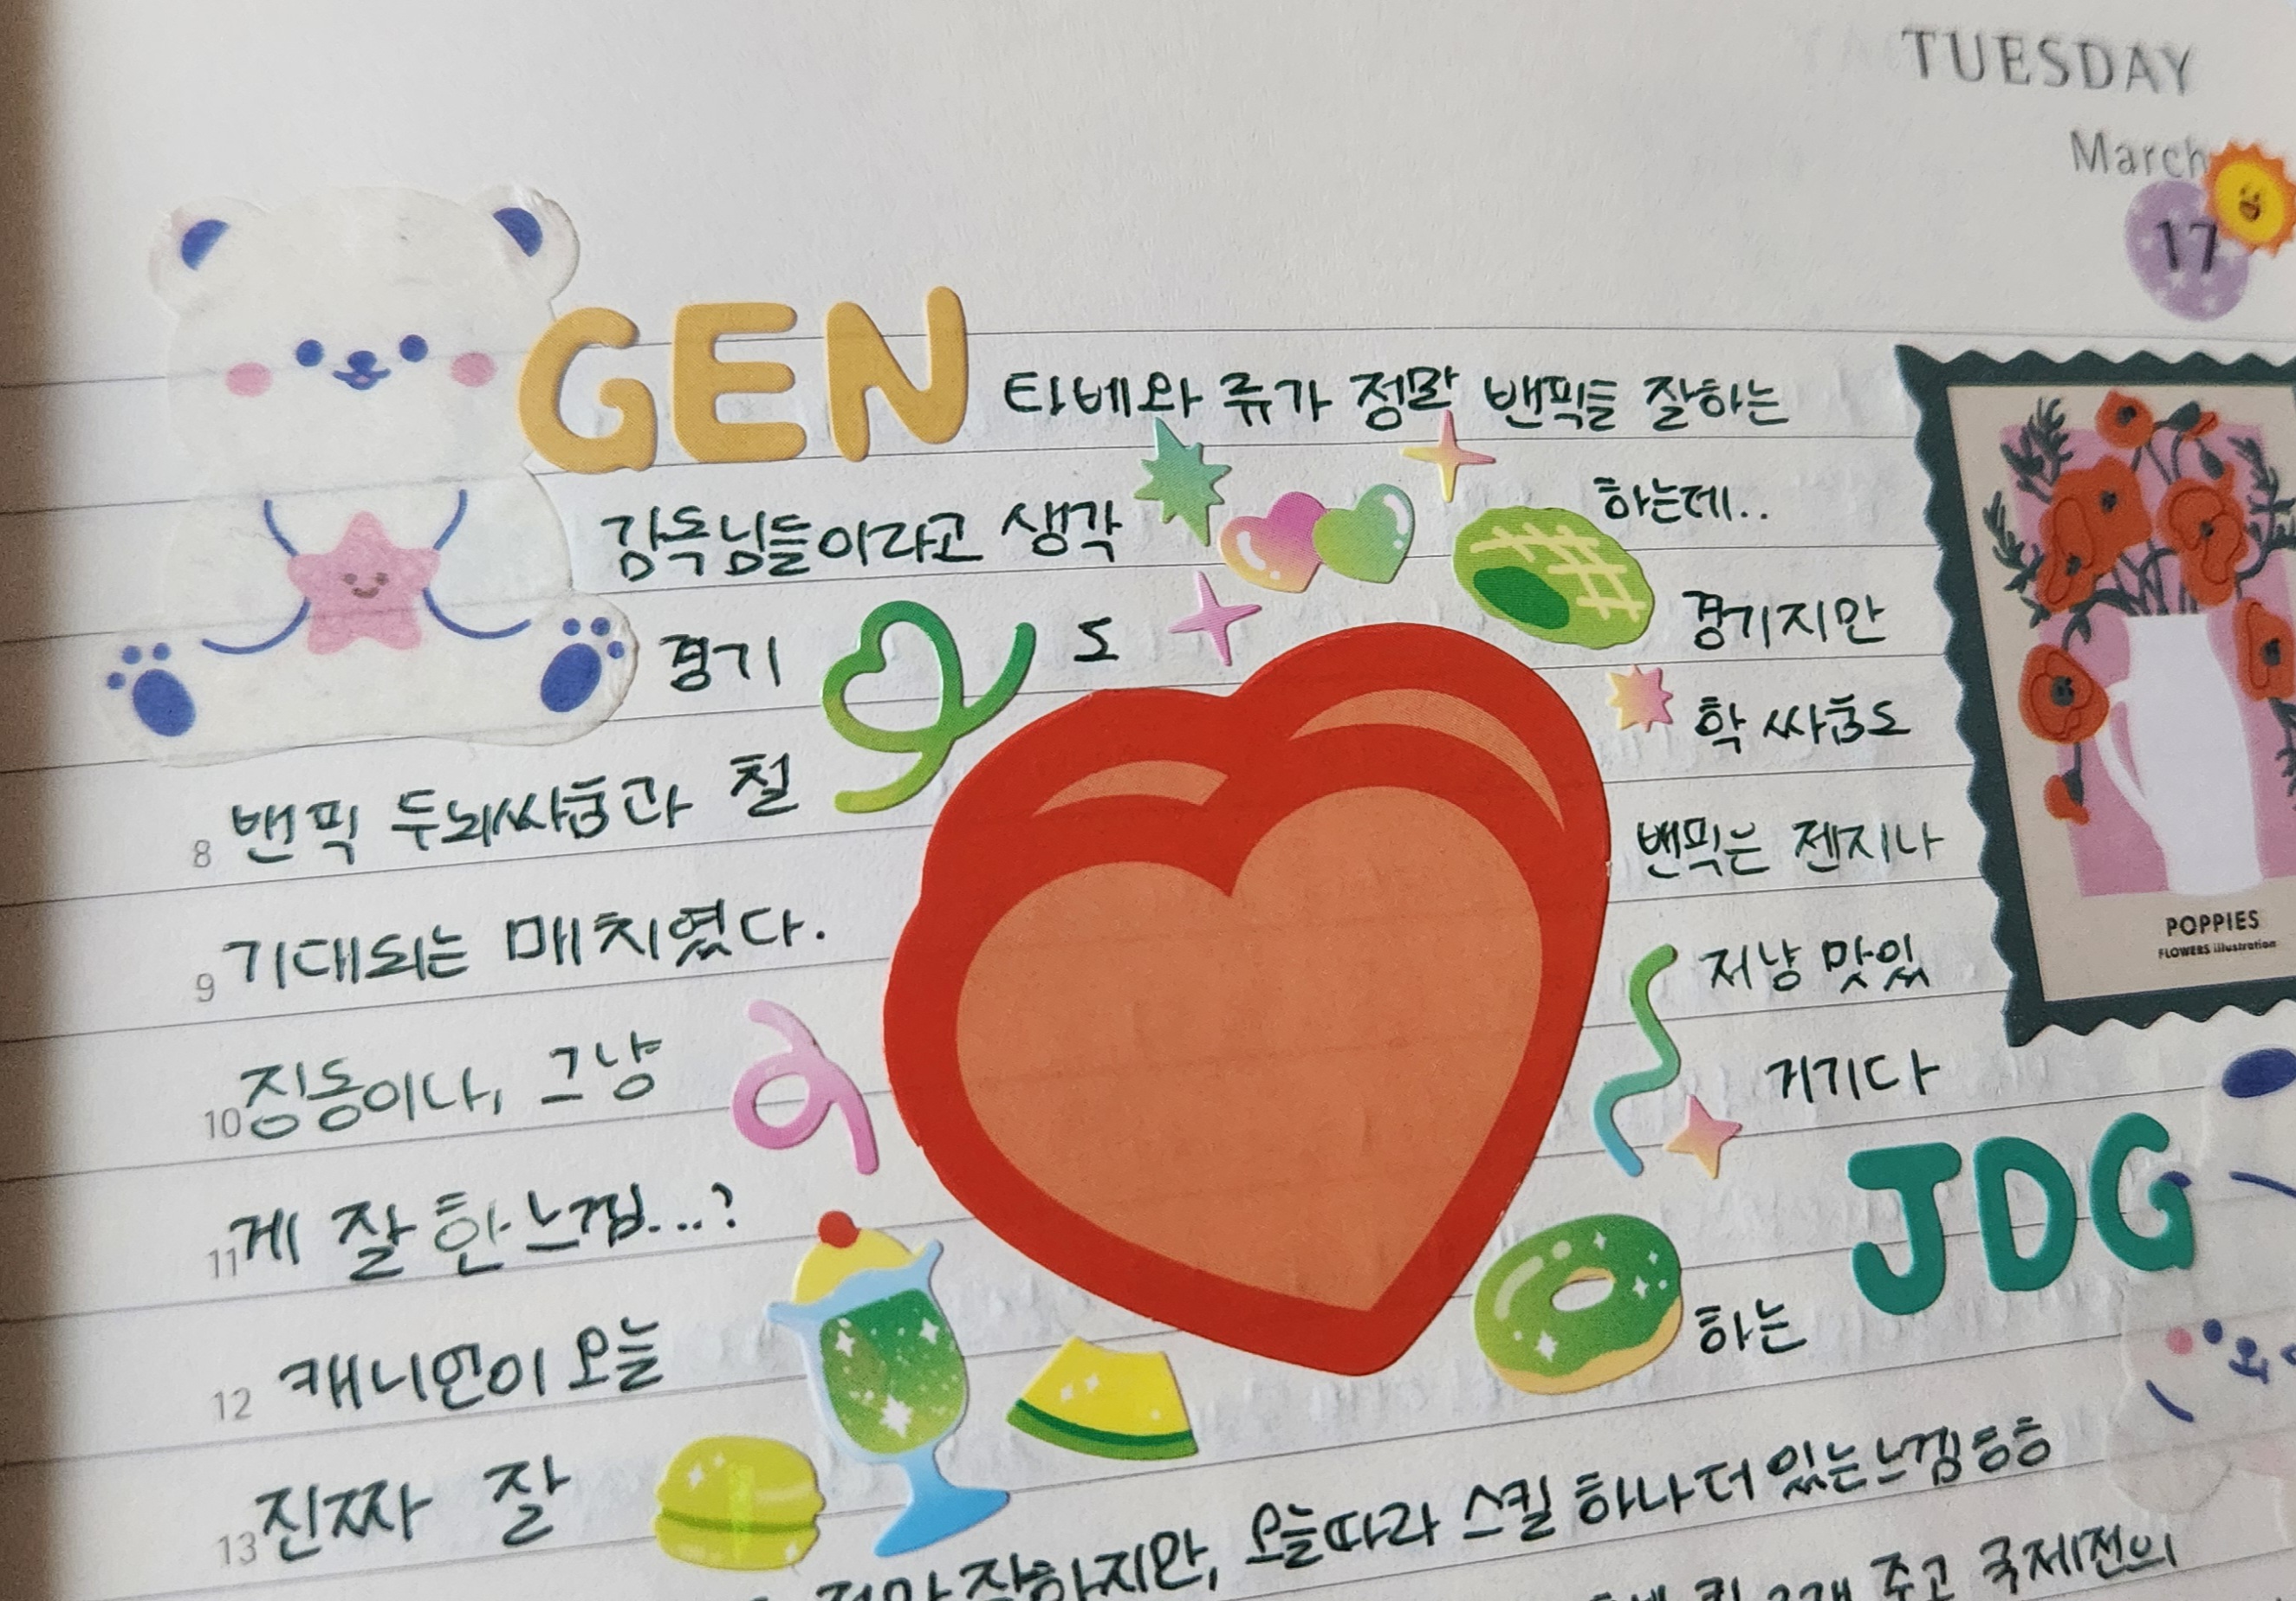 TUESDAY
March
17
GEN 타베와 류가 정말 밴픽을 잘하는
감독님들이라고 생각 하는데..
경기 도 경기지만
8 밴픽 두뇌싸움과 철 학 싸움도
기대되는 밴픽은 젠지나
9 매치였다.
징동이나, 그냥 저냥 맛있
10 거기다
11 게 잘 한 느낌...?
JDG
12 캐니언이 오늘 하는
13 진짜 잘
잘하지만, 오늘따라 스킬 하나 더 있는 느낌 흠흠
주고 국제전의
POPPIES
FLOWERS illustration